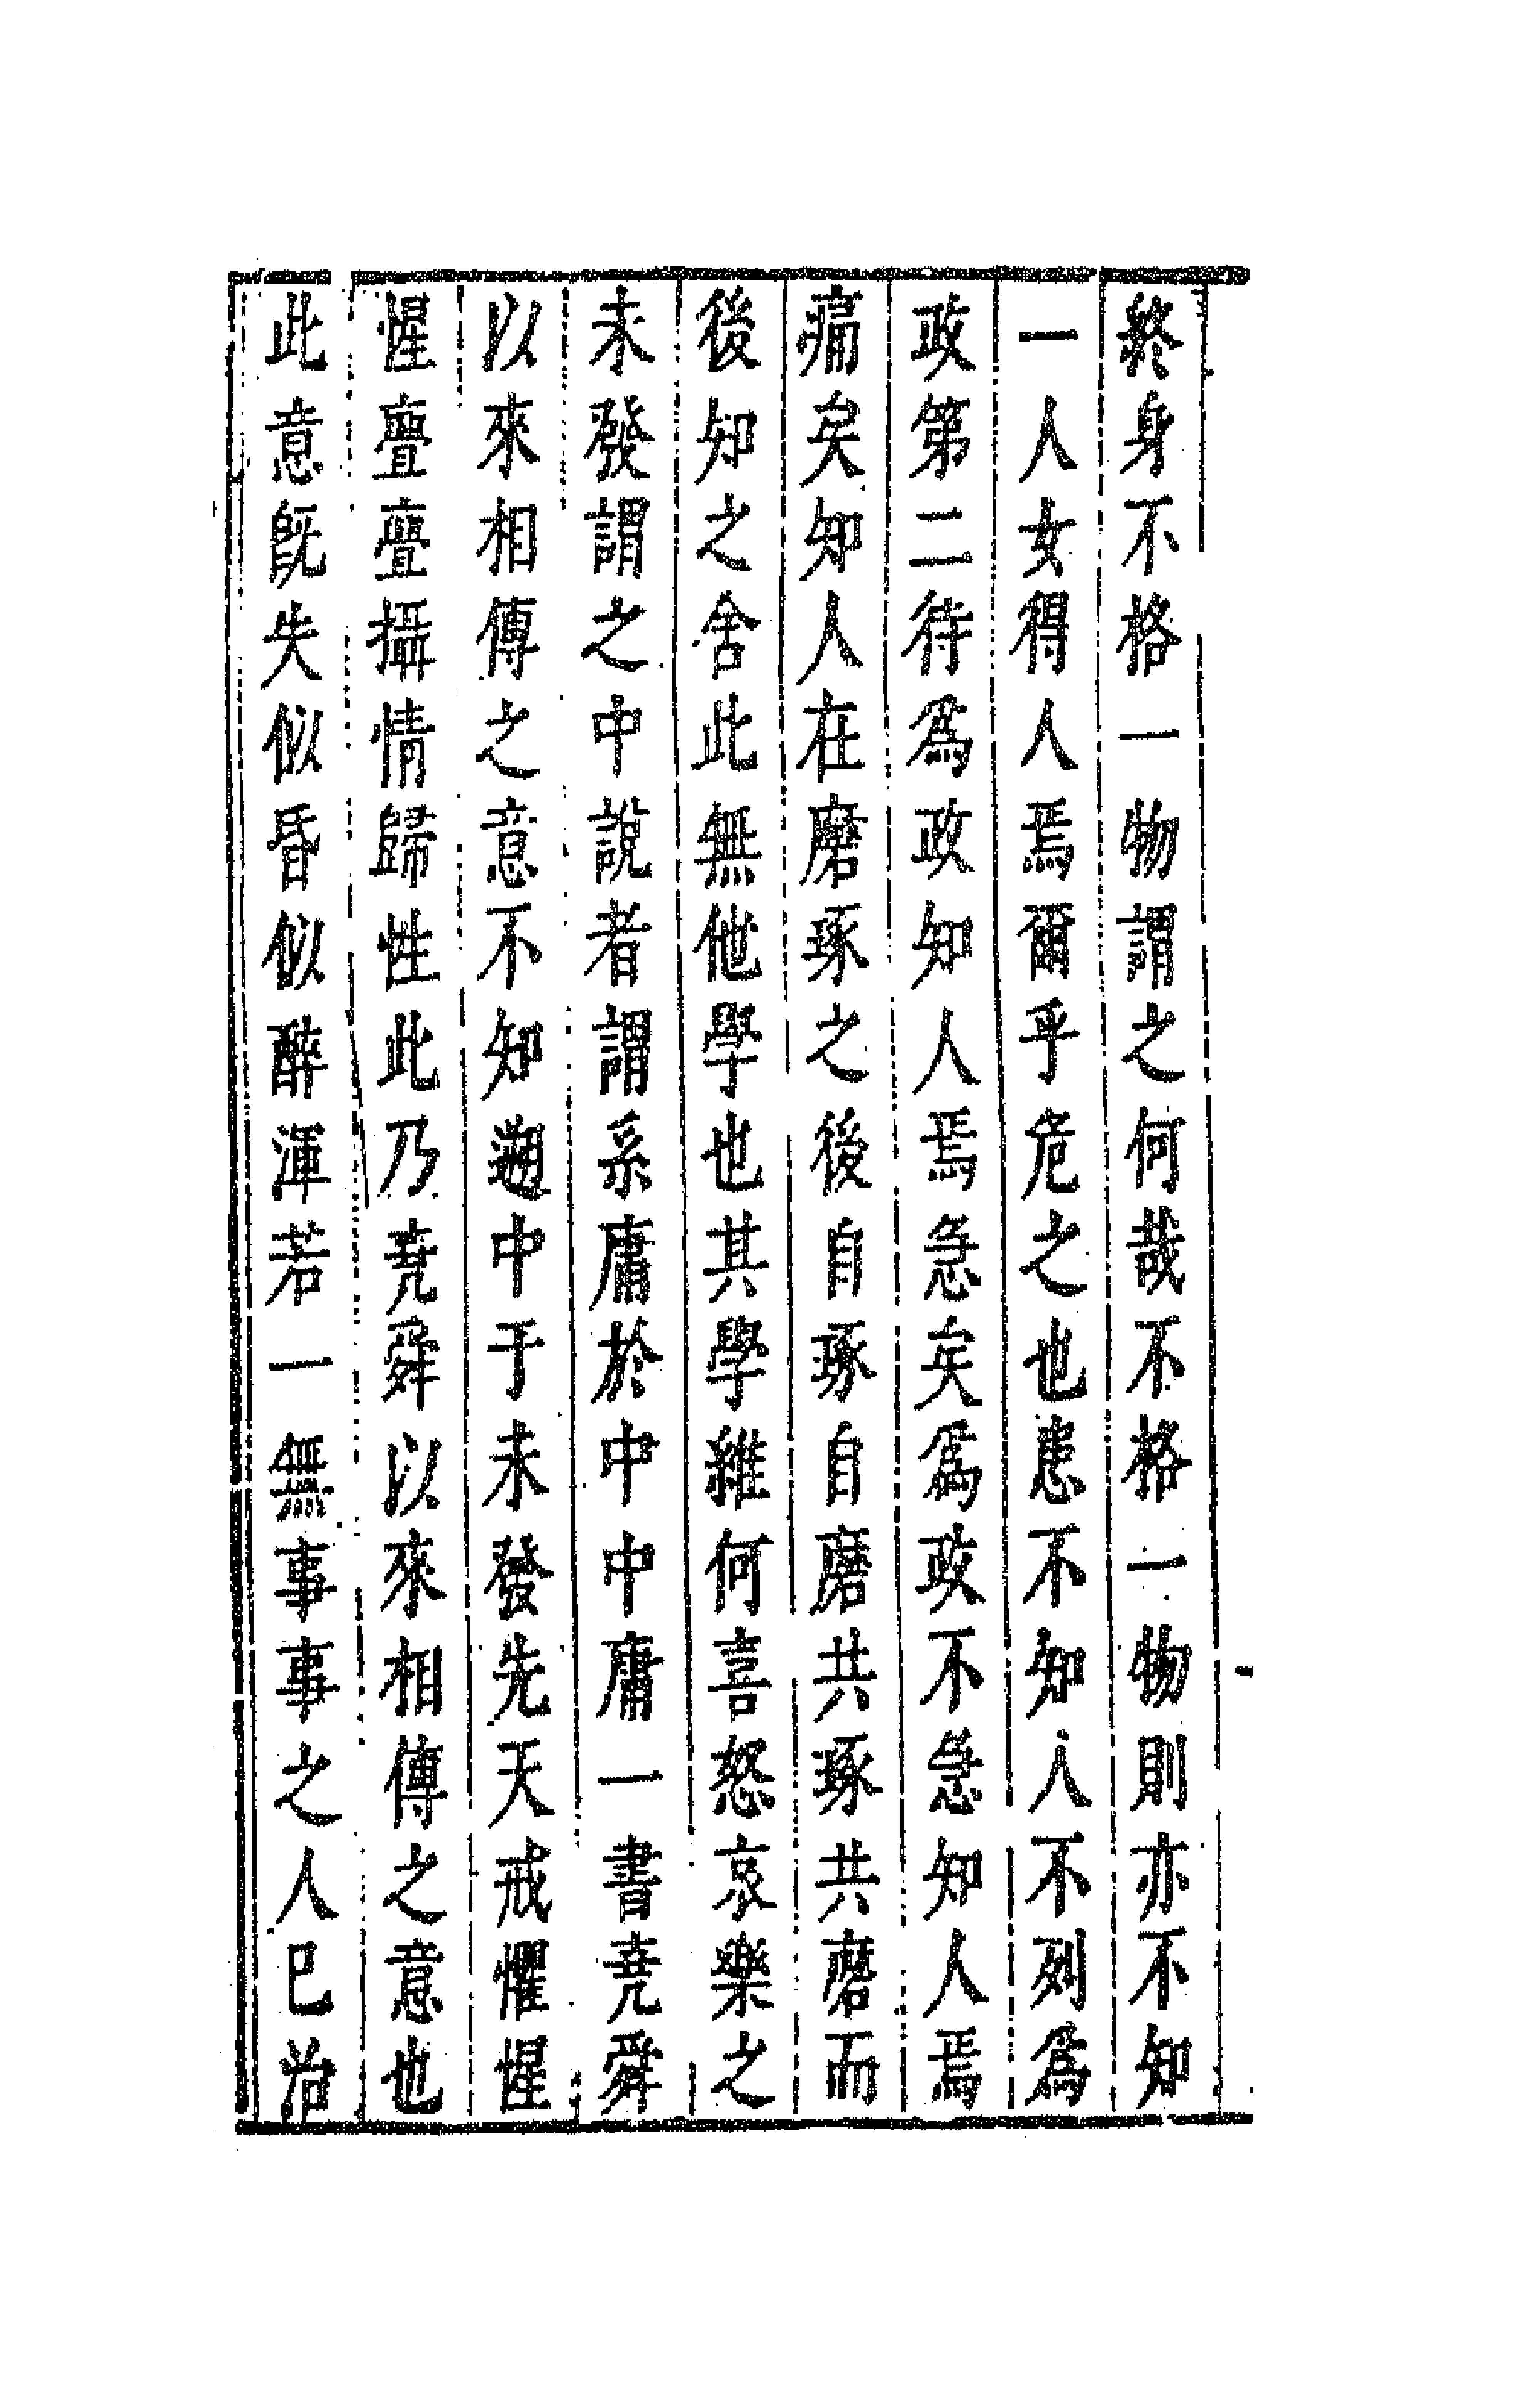 終身不格一物謂之何哉不格一物則亦不知
一人女得人焉爾乎危之也患不知人不列為
政第二待為政知人焉急矣為政不急知人焉
痛矣知人在磨琢之後自琢自磨共琢共磨而
後知之舍此無他學也其學維何喜怒哀樂之
未發謂之中說者謂系庸於中中庸一書堯舜
以來相傳之意不知遡中于未發先天戒懼惺
惺亹亹攝情歸性此乃堯舜以來相傳之意也
此意旣失似昏似醉渾若一無事事之人已治